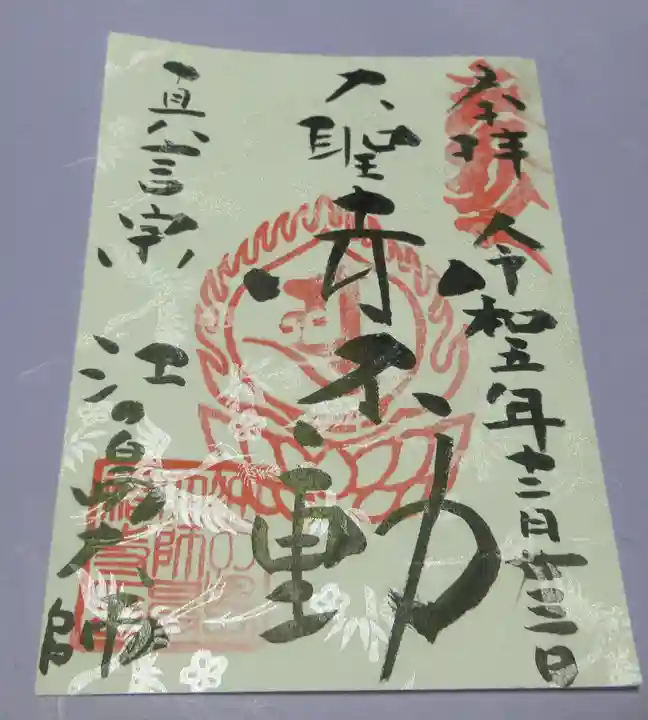 奉拝 令和五年十二月廿三日
大聖赤不動
真言宗 江の島大師